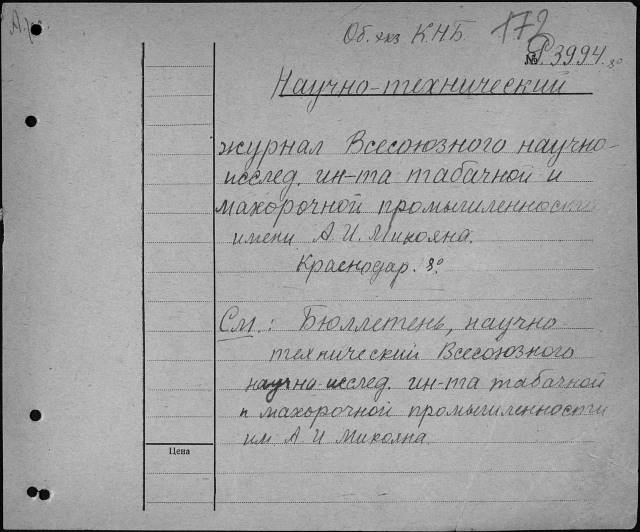 Об. экз К.Н.Б.
172
№ Р3994. 8°
Научно-технический
журнал Всесоюзного научно-
исслед. ин-та табачной и
махорочной промышленности
имени А.И. Микояна.
Краснодар. 8°.
См.: Бюллетень, научно
технический Всесоюзного
научно-исслед. ин-та табачной
и махорочной промышленности
им А И Микояна
Цена